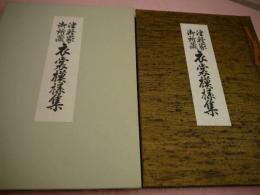 津軽家
御所蔵
衣裳模様集
津軽家
御所蔵
衣裳模様集